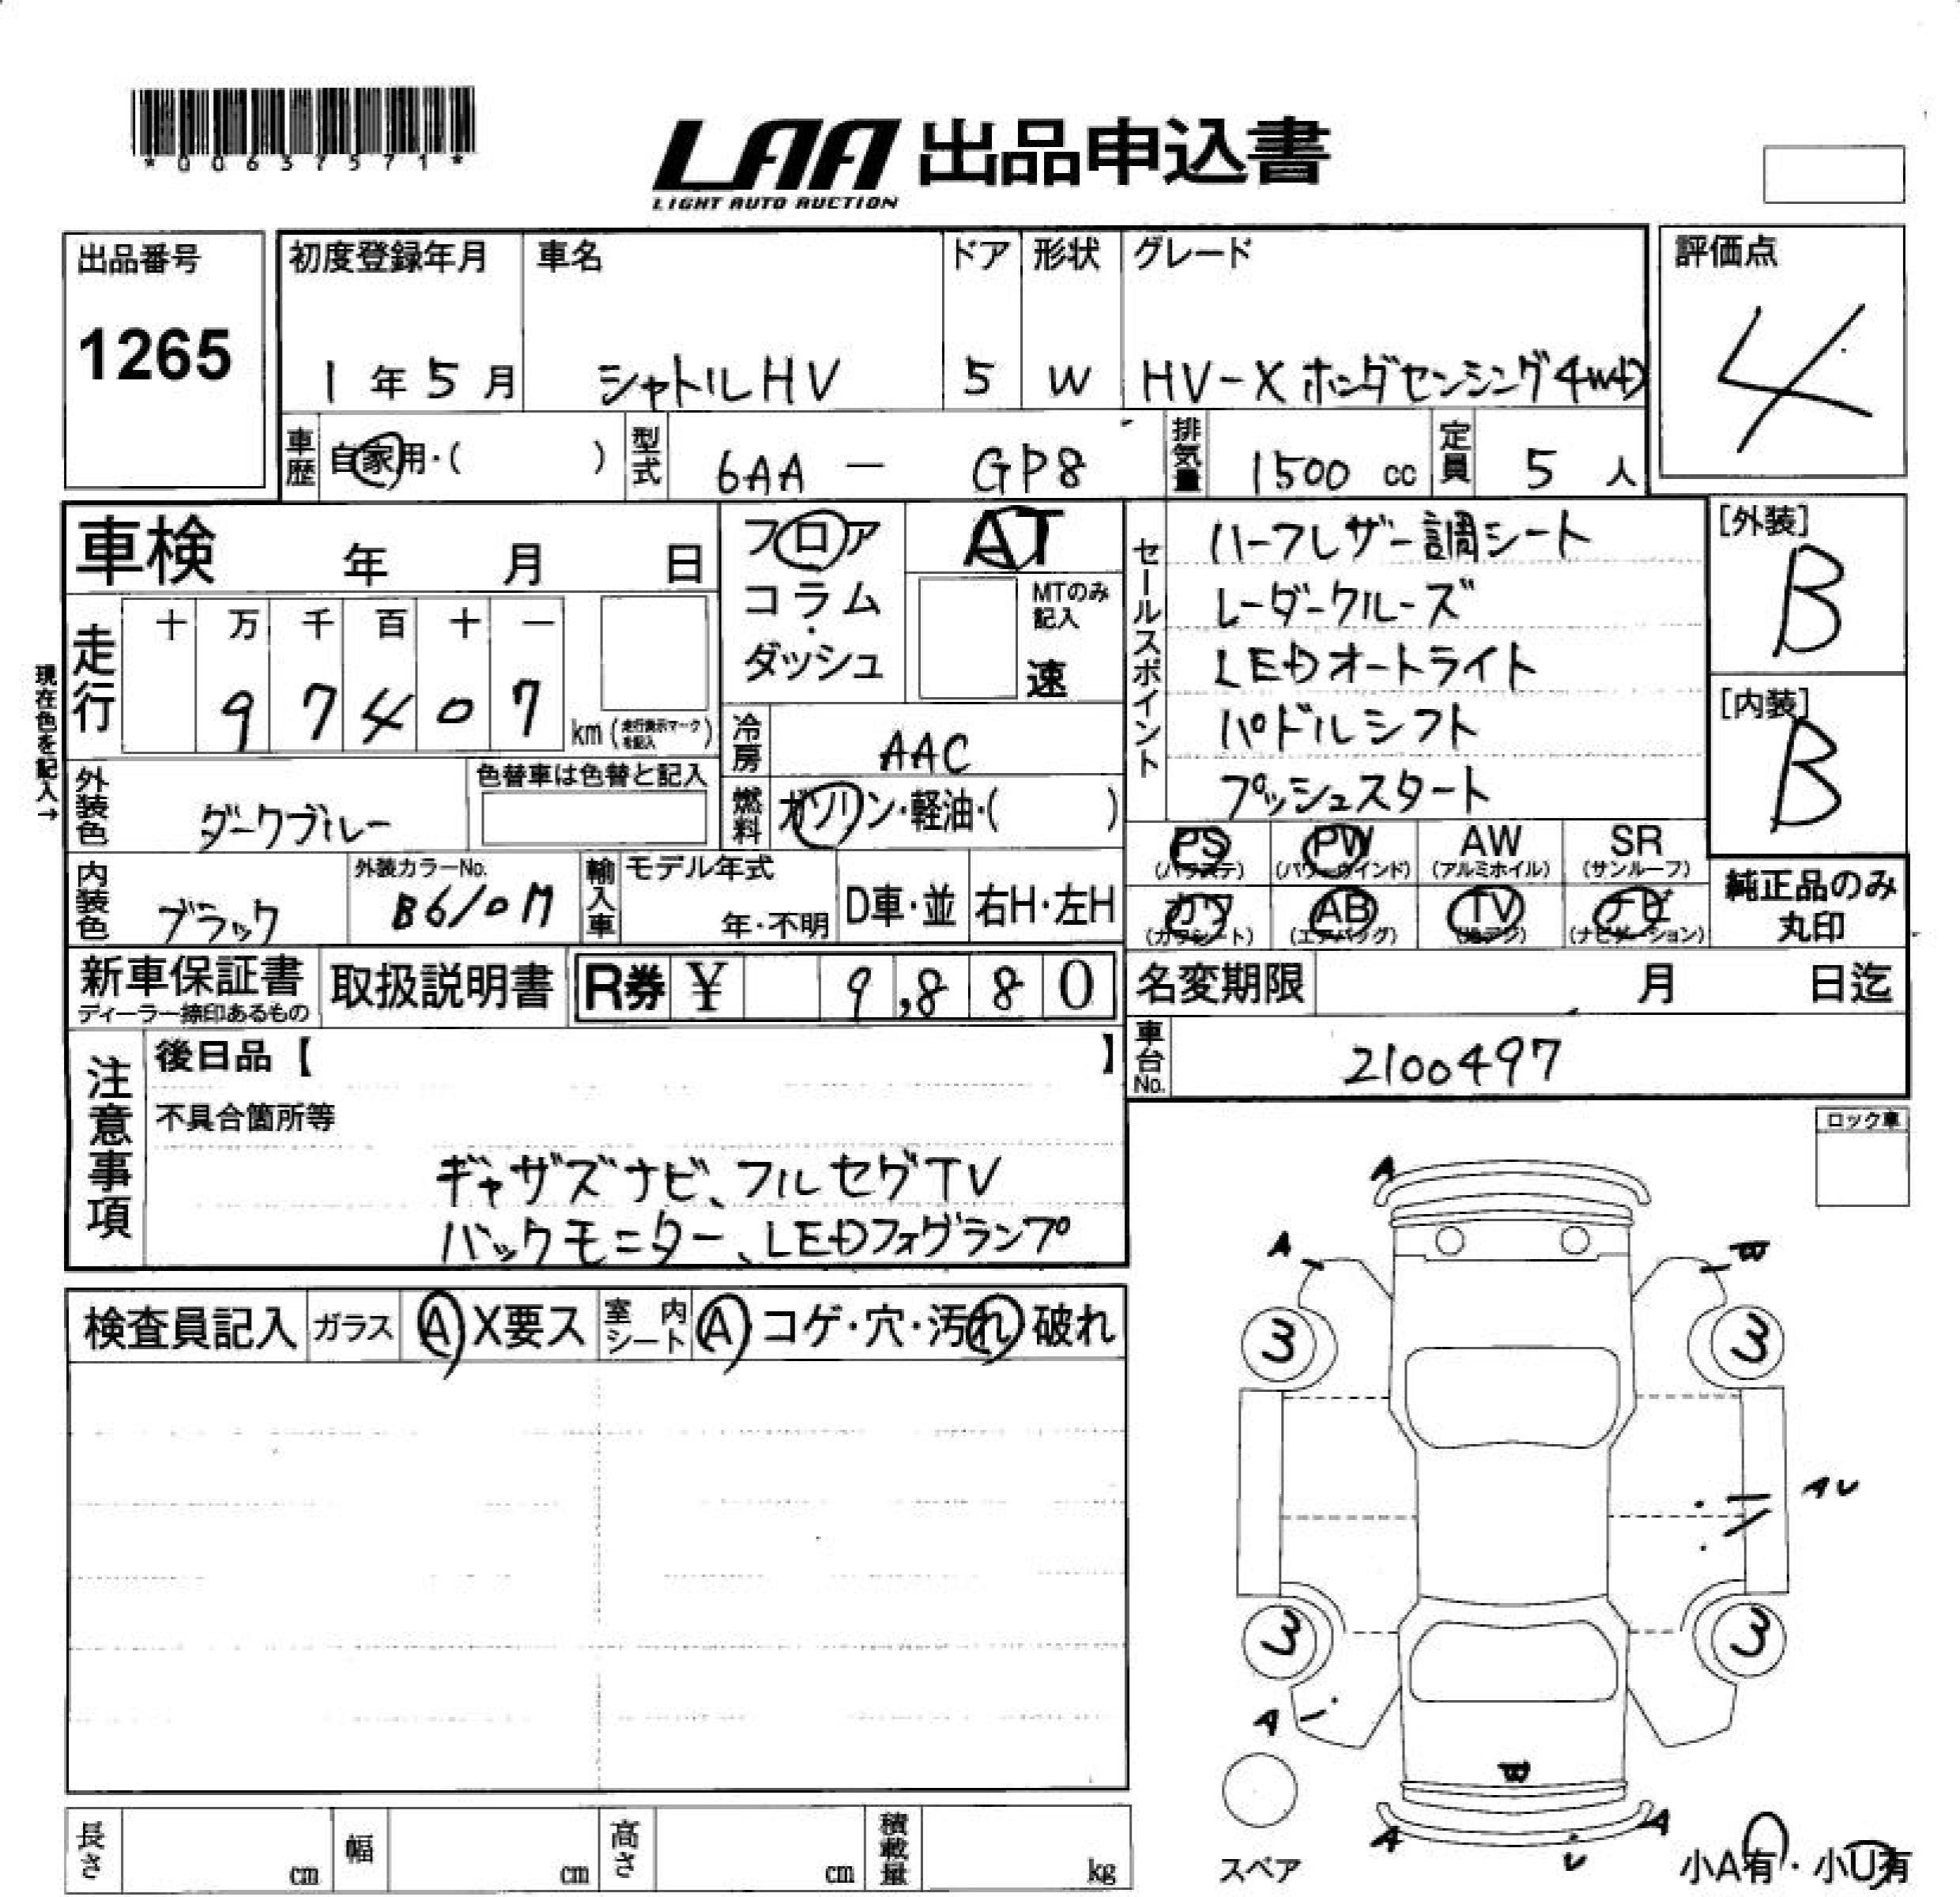 *00637571*
LAA 出品申込書
LIGHT AUTO AUCTION
出品番号
1265
初度登録年月
1年5月
車名
シャトルHV
ドア
5
形状
W
グレード
HV-X ホンダセンシング4WD
評価点
4
車歴 自家用・( )
型式 6AA - GP8
排気量 1500 cc
定員 5 人
車検 年 月 日
走行
十 万 千 百 十 一
9 7 4 0 7
km (走行表示マークを記入)
現在色を記入→
フロア
コラム
・
ダッシュ
AT
MTのみ
記入
速
冷房 AAC
燃料 ガソリン・軽油・( )
セールスポイント
ハーフレザー調シート
レーダークルーズ
LEDオートライト
パドルシフト
プッシュスタート
[外装]
B
[内装]
B
外装色 ダークブルー
色替車は色替と記入
内装色 ブラック
外装カラーNo.
B610M
輸入車
モデル年式
年・不明
D車・並
右H・左H
PS
(パワステ)
PW
(パワーウインド)
AW
(アルミホイル)
SR
(サンルーフ)
カワ
(カワシート)
AB
(エアバッグ)
TV
(地デジ)
ナビ
(ナビゲーション)
純正品のみ
丸印
新車保証書
ディーラー締印あるもの
取扱説明書
R券 ¥ 9,880
名変期限 月 日迄
車台No. 2100497
注意事項
後日品【 】
不具合箇所等
ギャザズナビ、フルセグTV
バックモニター、LEDフォグランプ
ロック車
検査員記入
ガラス
A X要ス
室内
シート
A コゲ・穴・汚れ 破れ
A
A
3
3
AU
3
3
A
A
A
U
スペア
小A有・小U有
長さ cm
幅 cm
高さ cm
積載量 kg